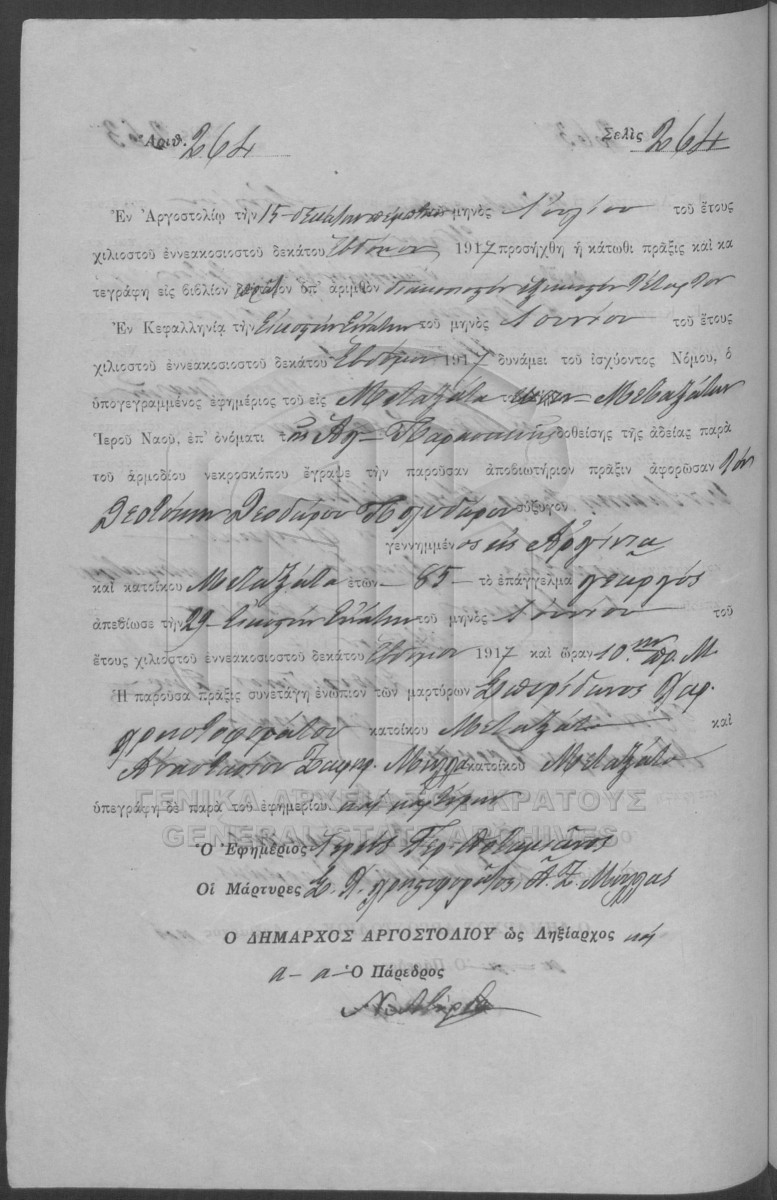 Ἀριθ. 264 Σελὶς 264
Ἐν Ἀργοστολίῳ τὴν 15 δεκάτην πέμπτην μηνὸς Ἰουλίου τοῦ ἔτους
χιλιοστοῦ ἐννεακοσιοστοῦ δεκάτου Ἑβδόμου 1917 προσήχθη ἡ κάτωθι πρᾶξις καὶ κα
τεγράφη εἰς βιβλίον ὑπ' ἀριθμὸν διακοσιοστὸν ἑξηκοστὸν τέταρτον
Ἐν Κεφαλληνίᾳ τὴν Εἰκοστὴν Ἐνάτην τοῦ μηνὸς Ἰουνίου τοῦ ἔτους
χιλιοστοῦ ἐννεακοσιοστοῦ δεκάτου Ἑβδόμου 1917 δυνάμει τοῦ ἰσχύοντος Νόμου, ὁ
ὑπογεγραμμένος ἐφημέριος τοῦ εἰς Μεταξάτα Μεταξάτων
Ἱεροῦ Ναοῦ, ἐπ' ὀνόματι τῆς Ἁγ. Παρασκευῆς δοθείσης τῆς ἀδείας παρὰ
τοῦ ἁρμοδίου νεκροσκόπου ἔγραψε τὴν παροῦσαν ἀποβιωτήριον πρᾶξιν ἀφορῶσαν τὸν
Θεοδώρου Πολυδώρου σύζυγον
γεννημμένος εἰς Ἀργίνια
καὶ κατοίκου Μεταξάτα ἐτῶν 85 τὸ ἐπάγγελμα γεωργός
ἀπεβίωσε τὴν 29 Εἰκοστὴν Ἐνάτην τοῦ μηνὸς Ἰουνίου τοῦ
ἔτους χιλιοστοῦ ἐννεακοσιοστοῦ δεκάτου Ἑβδόμου 1917 καὶ ὥραν 10ην πρ. Μ
Ἡ παροῦσα πρᾶξις συνετάγη ἐνώπιον τῶν μαρτύρων Σπυρίδωνος Χαρ.
Χρηστοφοράτου κατοίκου Μεταξάτα καὶ
Ἀναστασίου Μύλλα κατοίκου Μεταξάτα
ὑπεγράφη δὲ παρὰ τοῦ ἐφημερίου καὶ μαρτύρων
ΓΕΝΙΚΑ ΑΡΧΕΙΑ ΤΟΥ ΚΡΑΤΟΥΣ
GENERAL STATE ARCHIVES
Ὁ Ἐφημέριος Ἱερεὺς
Οἱ Μάρτυρες Σ. Χ. Χρηστοφοράτος, Ἀ. Ζ. Μύλλας
Ο ΔΗΜΑΡΧΟΣ ΑΡΓΟΣΤΟΛΙΟΥ ὡς Ληξίαρχος
α—α Ὁ Πάρεδρος